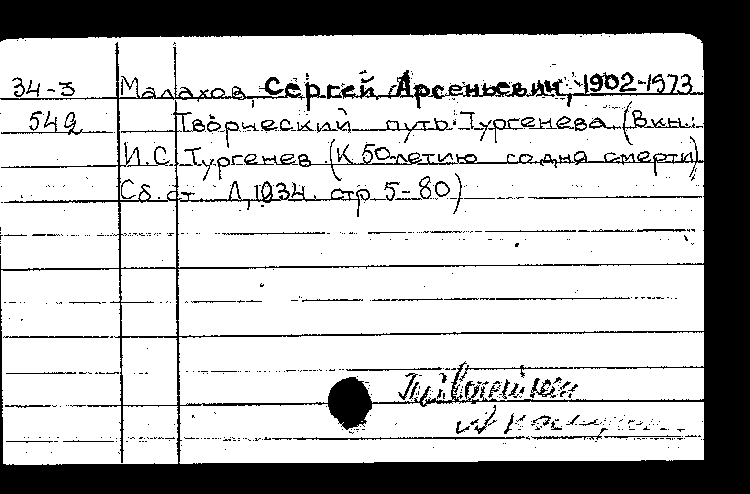 34-3 Малахов, Сергей Арсеньевич, 1902-1973
549 Творческий путь Тургенева (В кн.:
И.С. Тургенев (К 50-летию со дня смерти)
Сб. ст. Л, 1934. стр 5-80)